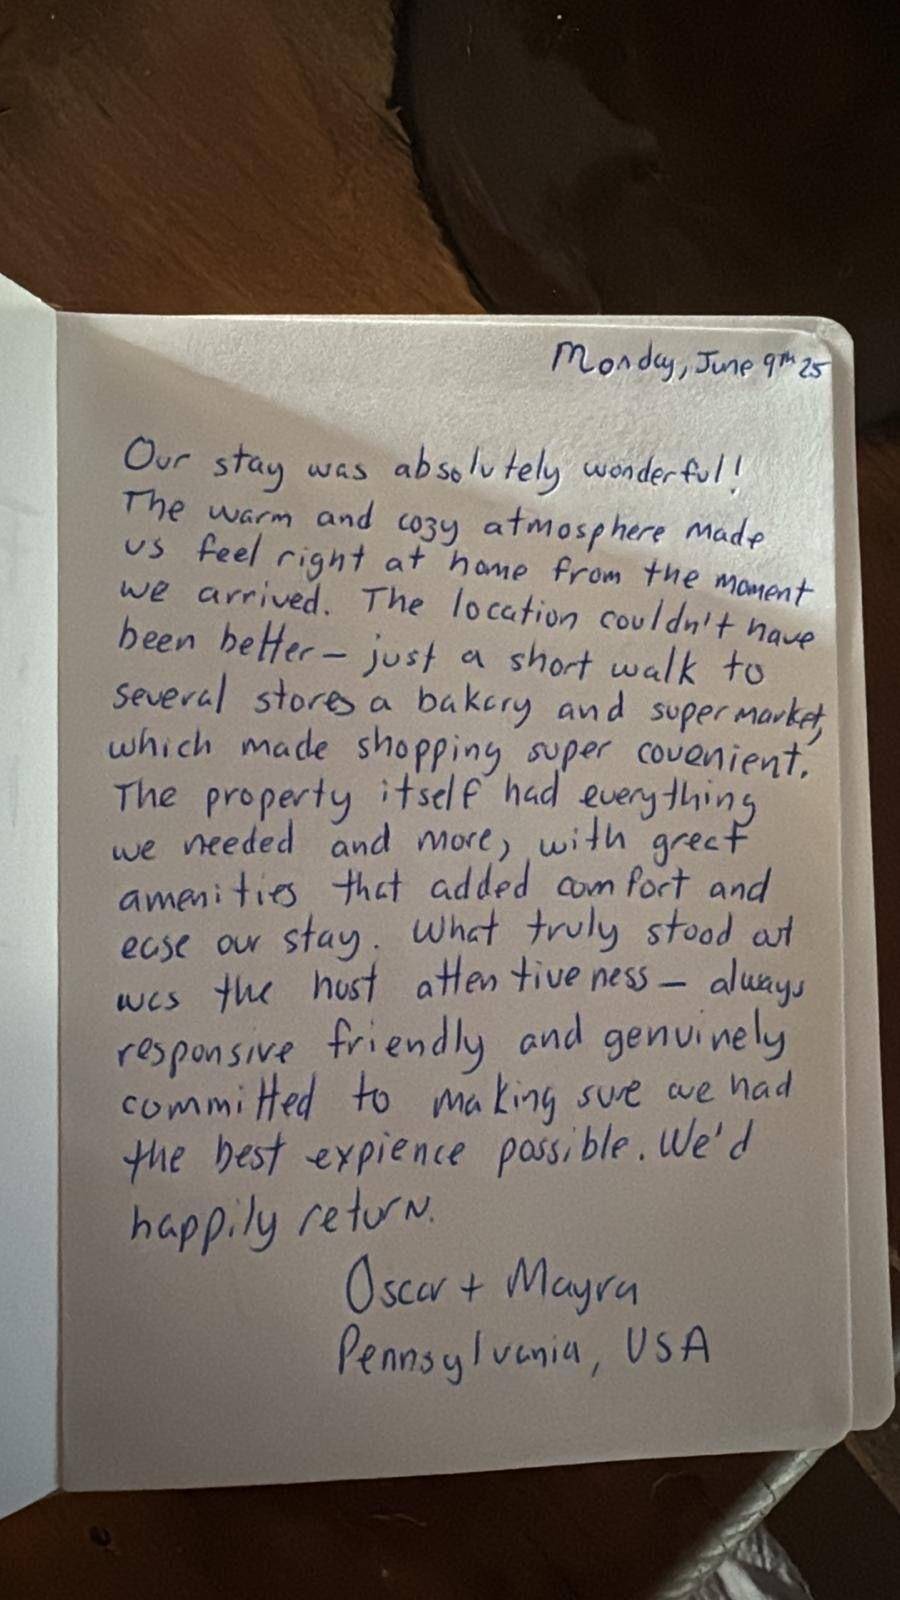 Monday, June 9th 25
Our stay was absolutely wonderful!
The warm and cozy atmosphere made
us feel right at home from the moment
we arrived. The location couldn't have
been better – just a short walk to
several stores a bakery and supermarket,
which made shopping super covenient.
The property itself had everything
we needed and more, with great
amenities that added comfort and
ease our stay. What truly stood out
was the host attentiveness – always
responsive friendly and genuinely
committed to making sure we had
the best expience possible. We'd
happily return.
Oscar + Mayra
Pennsylvania, USA